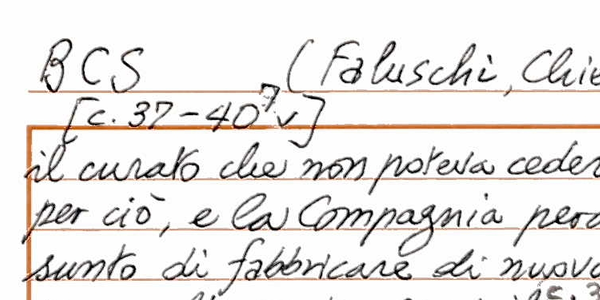 BCS (Faluschi, Chie
[c. 37-40 v]
il curato che non poteva ceder
per ciò, e la Compagnia perc
sunto di fabbricare di nuovo